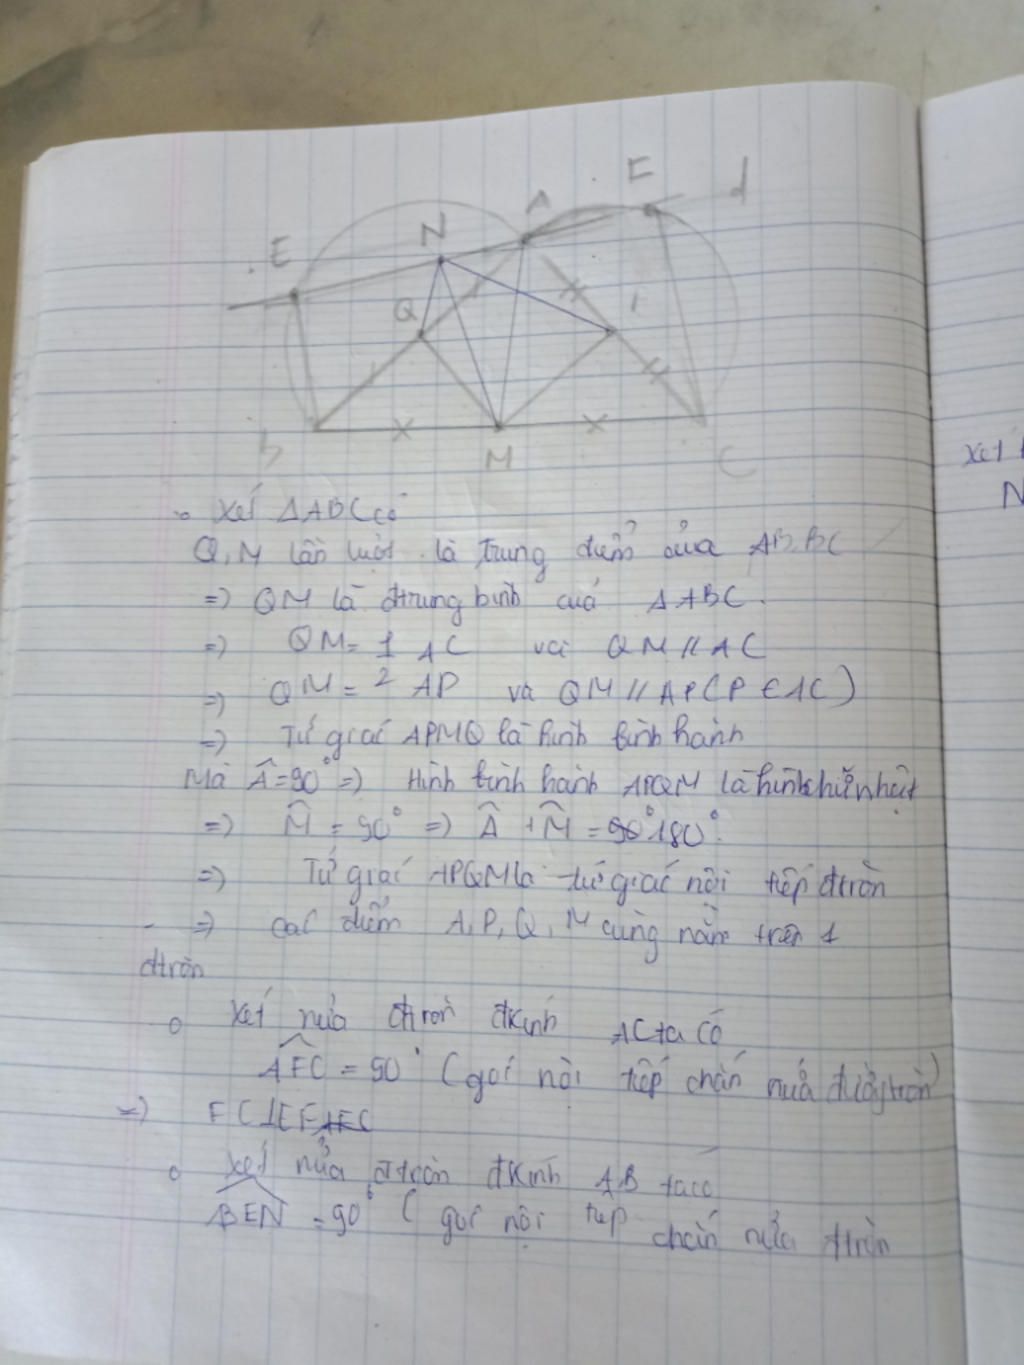 E N A F d
Q P
B M C
Xét ΔABC có
Q, M lần lượt là trung điểm của AB, BC
=) QM là đtrung bình của ΔABC.
=) QM = 1/2 AC và QM // AC
=) QM = AP và QM // AP (P ∈ AC)
=) Tứ giác APMQ là hình bình hành
Mà Â = 90° =) Hình bình hành APQM là hình chữ nhật
=) M̂ = 90° =) Â + M̂ = 180°.
=) Tứ giác APQM là tứ giác nội tiếp đtròn
- =) các điểm A, P, Q, M cùng nằm trên 1
đtròn
Xét nửa đtròn đkính AC ta có
AFC = 90° (góc nội tiếp chắn nửa đường tròn)
=) FC ⊥ EF
Xét nửa đtròn đkính AB ta có
BEN = 90° ( góc nội tiếp chắn nửa đtròn
Xét
N